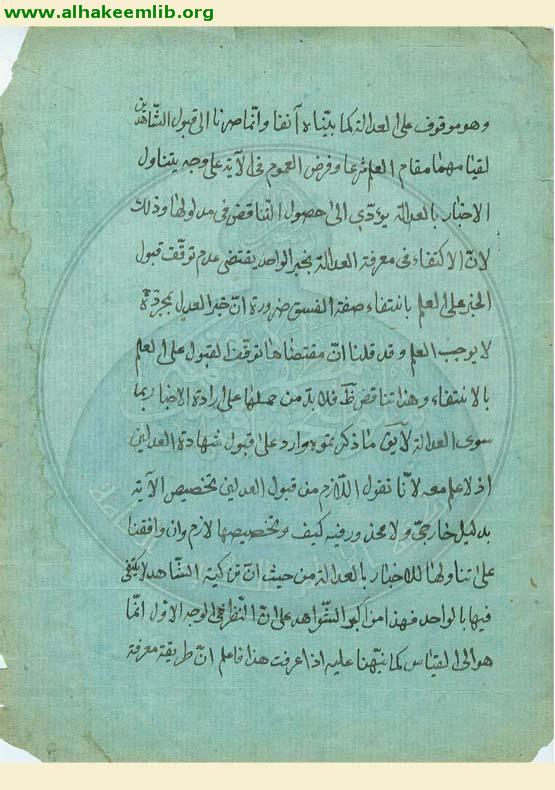 www.alhakeemlib.org
وهو موقوف على العدالة كما بيّناه آنفا وانّما صرنا الى قبول الشّاهدين
لقيامهما مقام العلم شرعا وفرض العموم فى الآية على وجه يتناول
الاخبار بالعدالة يؤدّي الى حصول التّناقض فى مدلولها وذلك
لانّ الاكتفاء فى معرفة العدالة بخبر الواحد يقتضى عدم توقّف قبول
الخبر على العلم بانتفاء صفة الفسق ضرورة انّ خبر العدل بمجرّده
لا يوجب العلم وقد قلنا انّ مقتضاها توقّف القبول على العلم
بالانتفاء وهذا تناقض ظ فلا بدّ من حملها على ارادة الاخبار بما
سوى العدالة لايق ما ذكرتموه وارد على قبول شهادة العدلين
اذ لا علم معه لانّا نقول اللّازم من قبول العدلين تخصيص الآية
بدليل خارجىّ ولا محذور فيه كيف وتخصيصها لازم وان وافقنا
على تناولها للاخبار بالعدالة من حيث انّ تزكية الشّاهد لا يكتفى
فيها بالواحد فهذا من اكبر الشّواهد على انّ النّظر فى الوجه الاوّل انّما
هو الى القياس كما نبّهنا عليه اذا عرفت هذا فاعلم انّ طريقة معرفة